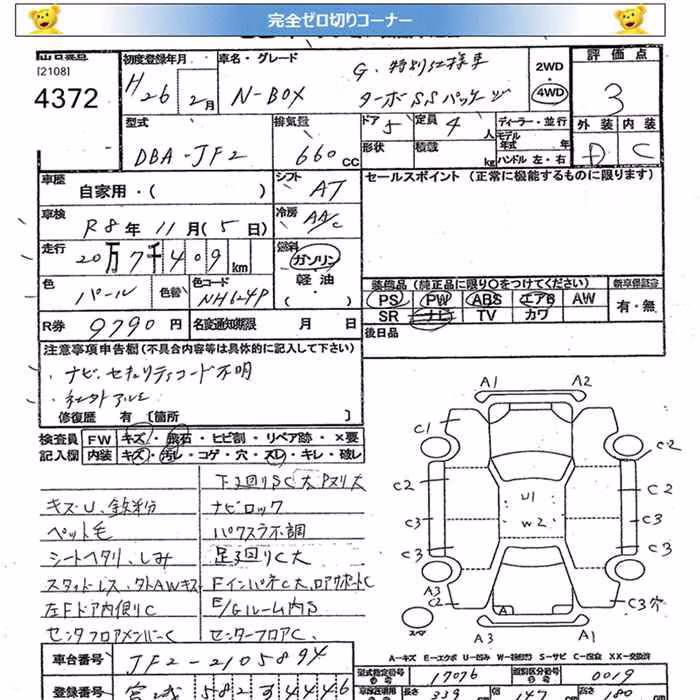 完全ゼロ切りコーナー
[2108]
4372
初度登録年月
H26年 2月
車名・グレード
N-BOX
G・特別仕様車
ターボSSパッケージ
2WD
4WD
評価点
3
外装 内装
D C
型式
DBA-JF2
排気量
660 cc
ドア 5
定員 4 人
ディーラー・並行
形状
積載 kg
モデル年式 年
ハンドル 左・右
車歴
自家用・( )
シフト AT
セールスポイント(正常に機能するものに限ります)
車検
R8年 11月(5日)
冷房 AAC
走行
20万7千409km
燃料
ガソリン
軽油
( )
色 パール
色替
色コード NH624P
装備品(純正品に限り○をつけてください)
新車保証書
PS PW ABS エアB AW
有・無
SR ナビ TV カワ
R券 9790円
名変通知期限 月 日
後日品
注意事項申告欄(不具合内容等は具体的に記入して下さい)
・ナビ、セキュリティコード不明
・社外アルミ
修復歴 有〔箇所 〕
検査員 FW キズ・飛石・ヒビ割・リペア跡・×要
記入欄 内装 キズ・汚レ・コゲ・穴・スレ・キレ・破レ
下回りSC大Pヌリ大
キズU、鉄粉分
ナビロック
ペット毛
パワスラ不調
シートヘタリ、しみ
足回りC大
スタッドレス、タトAWキズ
Fインパネ C大、ロアサポートC
左Fドア内側りC
E/Gルーム内S
センタフロアメンバーC
センターフロアC
A1 A2
C1
C2
C2
C2
U1
W2
C3
C3
A3
C2
C3穴
スペア
A
A3 A1
A-キズ E-エクボ U-凹み W-補修跡 S-サビ C-腐食 XX-交換済
車台番号 JF2-2105894
型式指定番号 17076
類別区分番号 0019
登録番号 宮城 582 す 4446
長さ 339 幅 147 高さ 180